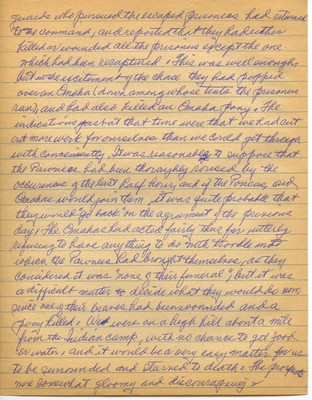 guards who pursued the escaped prisoners had returned
to the command, and reported that they had either
killed or wounded all the prisoners except the one
which had been recaptured. This was well enough
but in the excitement of the chase they had popped
over an Omaha (down among whose tents the prisoners
ran), and had also killed an Omaha pony. The
indications just at that time were that we had cut
out more work for ourselves than we could get through
with conveniently. It was reasonable to suppose that
the Pawnees had been thoroughly roused by the
occurrences of the last half hour, and if the Poncas, and
Omahas would join them, it was quite probable that
they would "go back" on the agreement of the previous
day. The Omahas had acted fairly thus far, utterly
refusing to have anything to do with the
which the Pawnees had brought themselves, as they
considered it was "none of their funeral", but it was
a difficult matter to decide what they would do now,
since one of their braves had been wounded and a
pony killed. We were on a high hill about a mile
from the Indian camp, with no chance to get food
or water, and it would be a very easy matter for us
to be surrounded and starved to death. The prospect
now somewhat gloomy and discouraging.